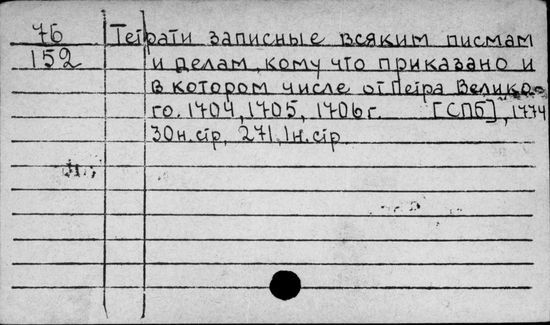 76
152
Тетрати записные всяким писмам
и делам, кому что приказано и
в котором числе от Петра Велико-
го. 1704, 1705, 1706 г. [СПб], 1774
30н.стр, 271, 1н.стр.